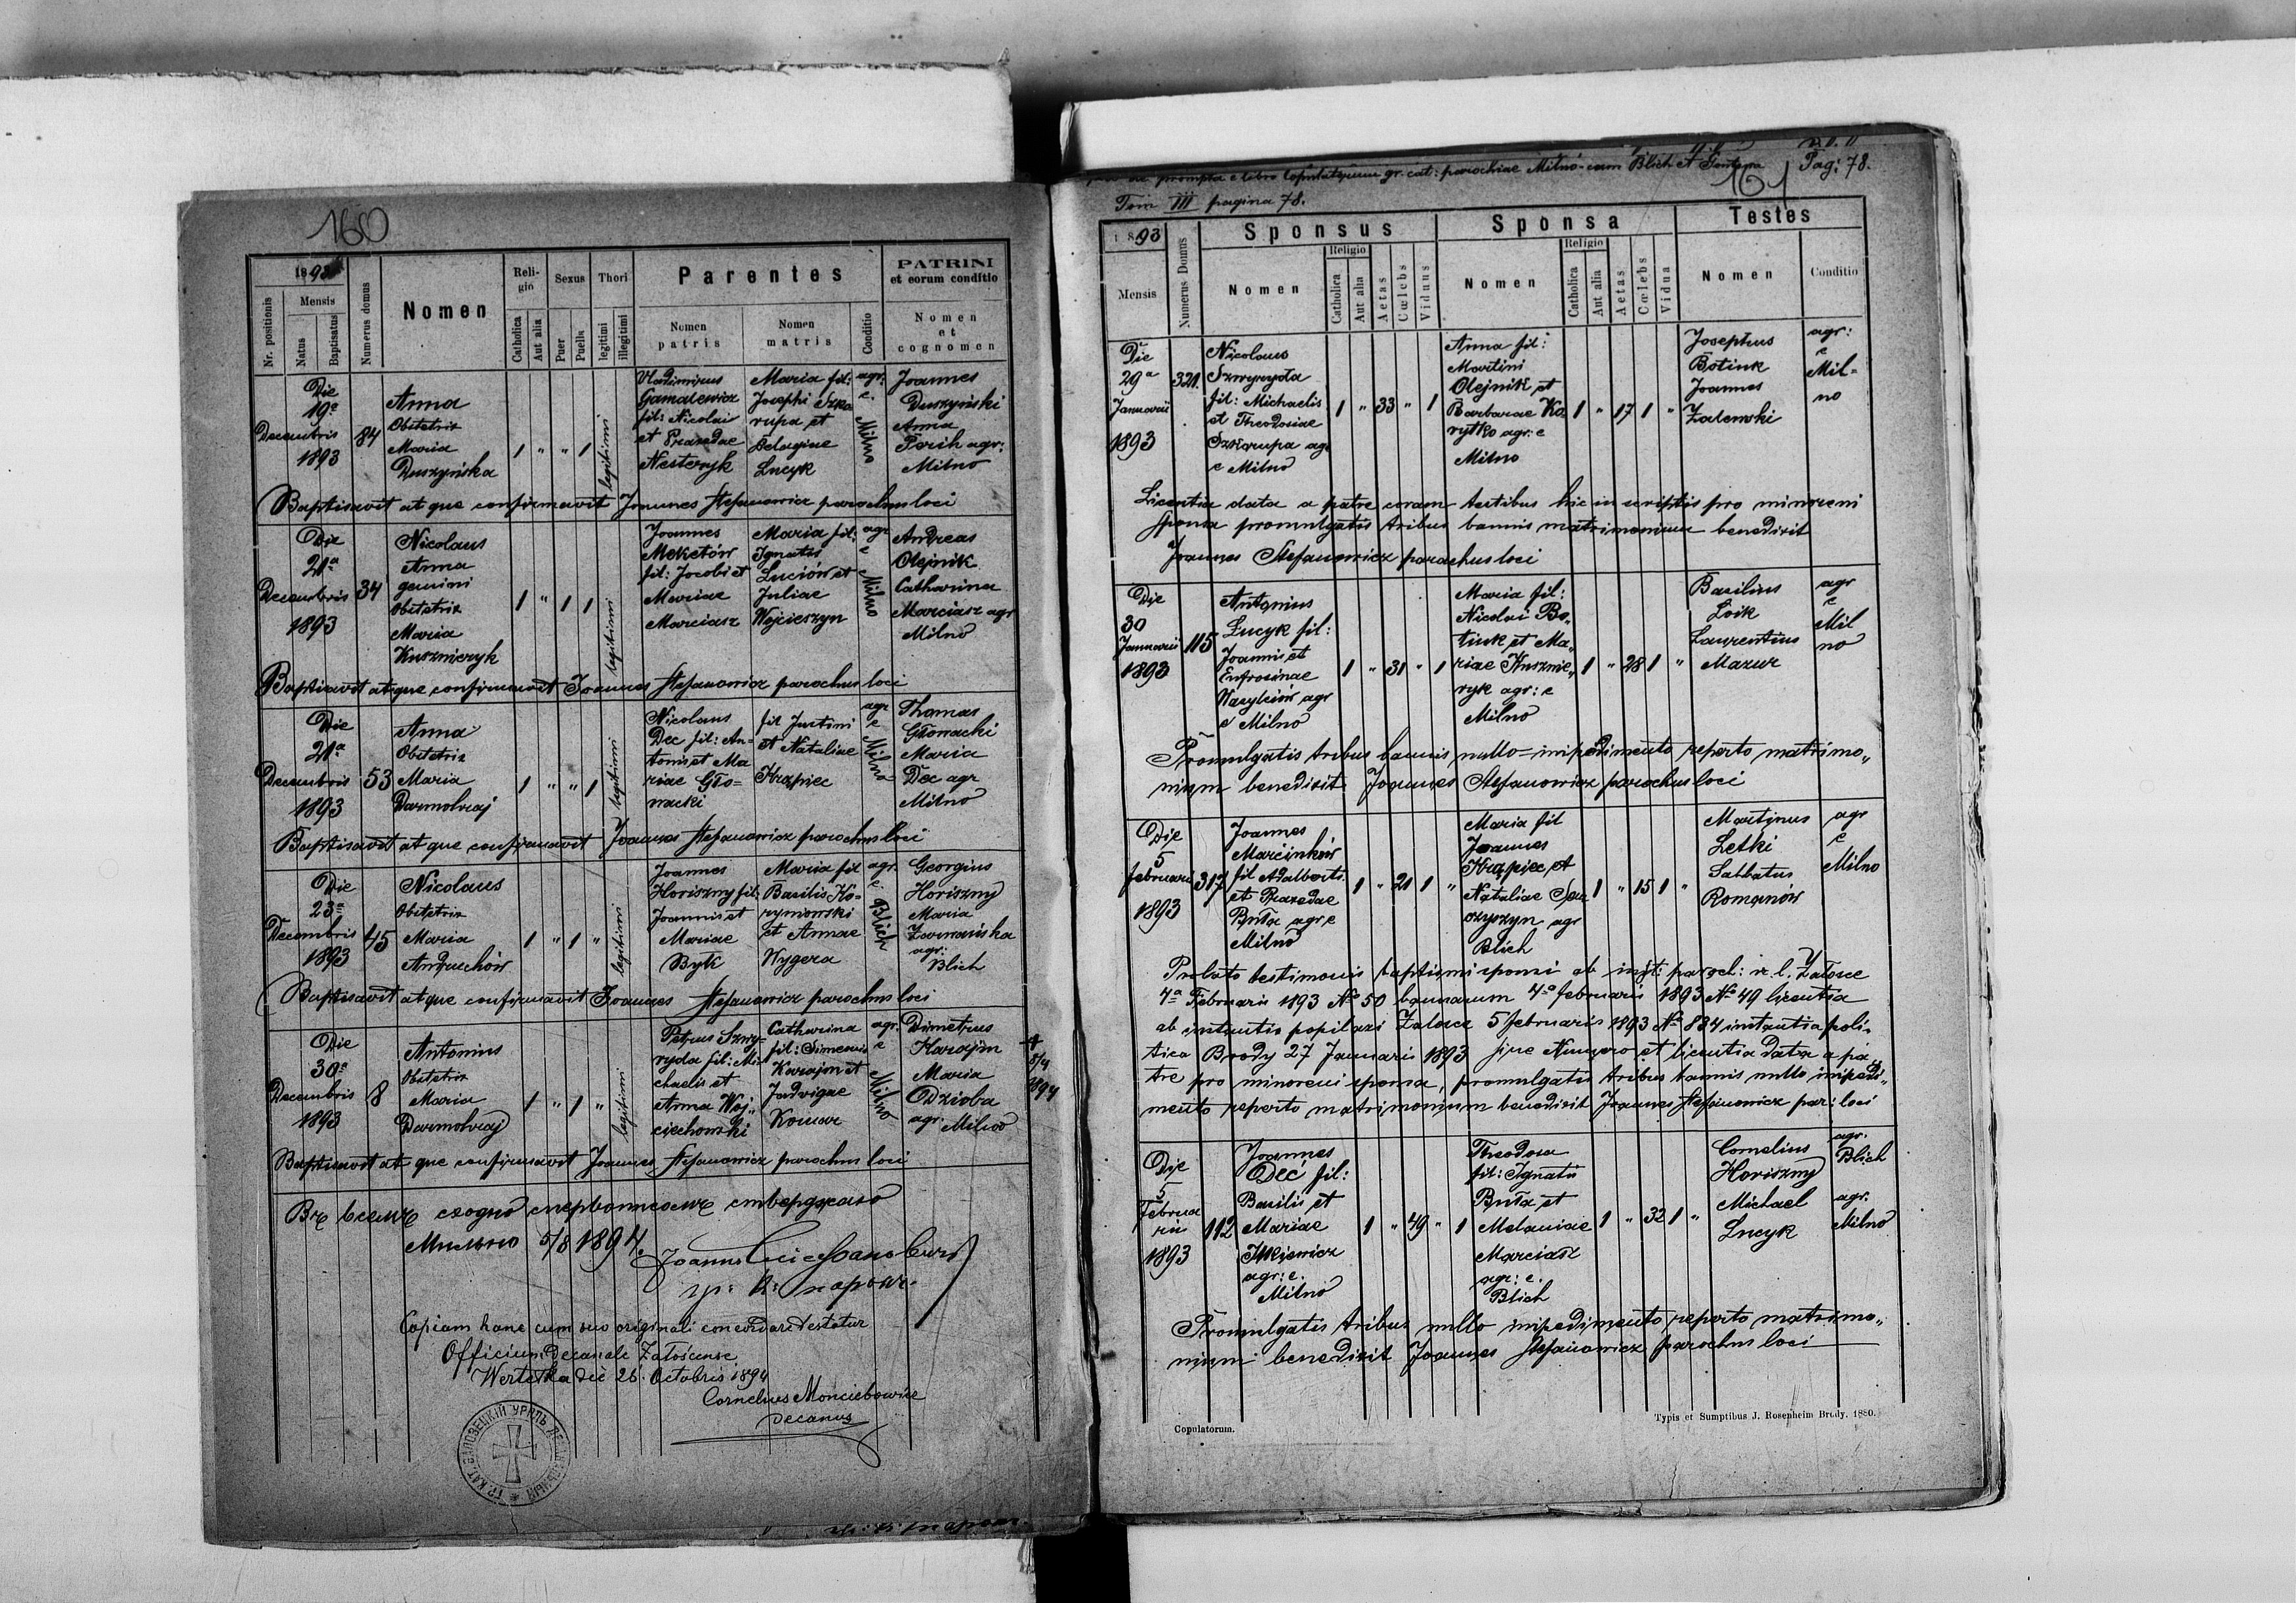 160
1893
Nr. positionis
Mensis
Natus
Baptisatus
Numerus domus
Nomen
Religio
Catholica
Aut alia
Sexus
Puer
Puella
Thori
legitimi
illegitimi
Parentes
Nomen patris
Nomen matris
Conditio
PATRINI
et eorum conditio
Nomen
et
cognomen
Die
19a
Decembris
1893
84
Anna
Obstetrix
Maria
Duszyńska
1 " " 1
legitimi
Vladimirus
Gamalewicz
fil: Nicolai
et Praxedae
Nesteryk
Maria fil:
Josephi Szka
rupa et
Pelagiae
Lucyk
agr:
e
Milno
Joannes
Duszyński
Anna
Parih agr:
Milno
Baptisavit atque confirmavit Joannes Stefanowicz parochus loci
Die
21a
Decembris
1893
34
Nicolaus
Anna
gemini
Obstetrix
Maria
Kusznieryk
1 " 1 1
legitimi
Joannes
Mokietów
fil: Jacobi et
Mariae
Marciasz
Maria fil:
Ignatii
Luciów et
Juliae
Wojcieszyn
agr
e
Milno
Andreas
Olejnik
Catharina
Marciasz agr
Milno
Baptisavit atque confirmavit Joannes Stefanowicz parochus loci
Die
21a
Decembris
1893
53
Anna
Obstetrix
Maria
Darmohraj
1 " " 1
legitimi
Nicolaus
Dec fil: An-
tonii et Ma
riae Gło-
wacki
fil Justini
et Nataliae
Krąpiec
agr
e
Milno
Thomas
Głowacki
Maria
Dec agr
Milno
Baptisavit atque confirmavit Joannes Stefanowicz parochus loci
Die
23a
Decembris
1893
45
Nicolaus
Obstetrix
Maria
Andruchów
1 " 1 "
legitimi
Joannes
Horiszny fil:
Joannis et
Mariae
Byk
Maria fil
Basilii Ko-
rynowski
et Annae
Wygera
agr.
e
Blich
Georgius
Horiszny
Maria
Zarwańska
agr:
Blich
Baptisavit atque confirmavit Joannes Stefanowicz parochus loci
Die
30a
Decembris
1893
8
Antonius
Obstetrix
Maria
Darmohraj
1 " 1 "
legitimi
Petrus Szwy-
ryda fil: Mi-
chaelis et
Anna Woj-
ciechowski
Catharina
fil: Simeonis
Karajm et
Jadvigae
Komar
agr.
e
Milno
Dimetrius
Karajm
Maria
Odzioba
agr. Milno
1894
Baptisavit atque confirmavit Joannes Stefanowicz parochus loci
Мильно 5/8 1894.
Copiam hanc cum suo originali concordare testatur
Officium Decanale Załoscense
Wertełka die 26. Octobris 1894
Cornelius Monciebowicz
Decanus
e libro Copulatorum gr. cat: parochiae Milno cum Blich et Fontana
161
Pag: 78.
Tom III pagina 78.
1893
Mensis
Numerus Domus
Sponsus
Nomen
Religio
Catholica
Aut alia
Aetas
Cœlebs
Viduus
Sponsa
Nomen
Religio
Catholica
Aut alia
Aetas
Cœlebs
Vidua
Testes
Nomen
Conditio
Die
29a
Januarii
1893
321.
Nicolaus
Szwyryda
fil: Michaelis
et Theodosiae
Szkarupa agr
e Milno
1 " 33 " 1
Anna fil:
Martini
Olejnik et
Barbarae Ko
rytko agr: e
Milno
1 " 17 1 "
Josephus
Botiuk
Joannes
Zalewski
agr:
e
Mil-
no
Licentia data a patre coram testibus hic inscriptis pro minoreni
sponsa promulgatis tribus bannis matrimonium benedixit
Joannes Stefanowicz parochus loci
Die
30
Januarii
1893
115
Antonius
Łucyk fil:
Joannis et
Eufrosinae
Wasylciów agr
e Milno
1 " 31 " 1
Maria fil:
Nicolai Bo-
tiuk et Ma-
riae Kusznie-
ryk agr: e
Milno
1 " 28 1 "
Basilius
Loik
Laurentius
Mazur
agr
e
Mil
no
Promulgatis tribus bannis nullo impedimento reperto matrimo-
nium benedixit Joannes Stefanowicz parochus loci
Die
5
februarii
1893
317
Joannes
Marcinków
fil Adalberti
et Praxedae
Buta agr e
Milno
1 " 21 1 "
Maria fil
Joannes
Krąpiec et
Nataliae
agr
Blich
1 " 15 1 "
Martinus
Letki
Sabbatus
Romanów
agr
e
Milno
Probato testimonio baptismi sponsi ab inst: paroch: r. l. Załosce
4a Februarii 1893 No 50 bannorum 4a februarii 1893 No 49 licentia
ab instantia popilari Załosce 5 februarii 1893 No 884 instantia poli-
tica Brody 27 Januarii 1893 sine Numero et licentia data a pa-
tre pro minoreni sponsa, promulgatis tribus bannis nullo impedi-
mento reperto matrimonium benedixit Joannes Stefanowicz par: loci
Die
5
Februa
rii
1893
112
Joannes
Deć fil:
Basilii et
Mariae
Ilkiewicz
agr: e.
Milno
1 " 49 " 1
Theodora
fil: Ignatii
Buta et
Melaniae
Marciasz
agr: e.
Blich
1 " 32 1 "
Cornelius
Horiszny
Michael
Lucyk
agr.
Blich
agr.
Milno
Promulgatis tribus nullo impedimento reperto matrimo-
nium benedixit Joannes Stefanowicz parochus loci
Copulatorum.
Typis et Sumptibus J. Rosenheim Brody. 1880.